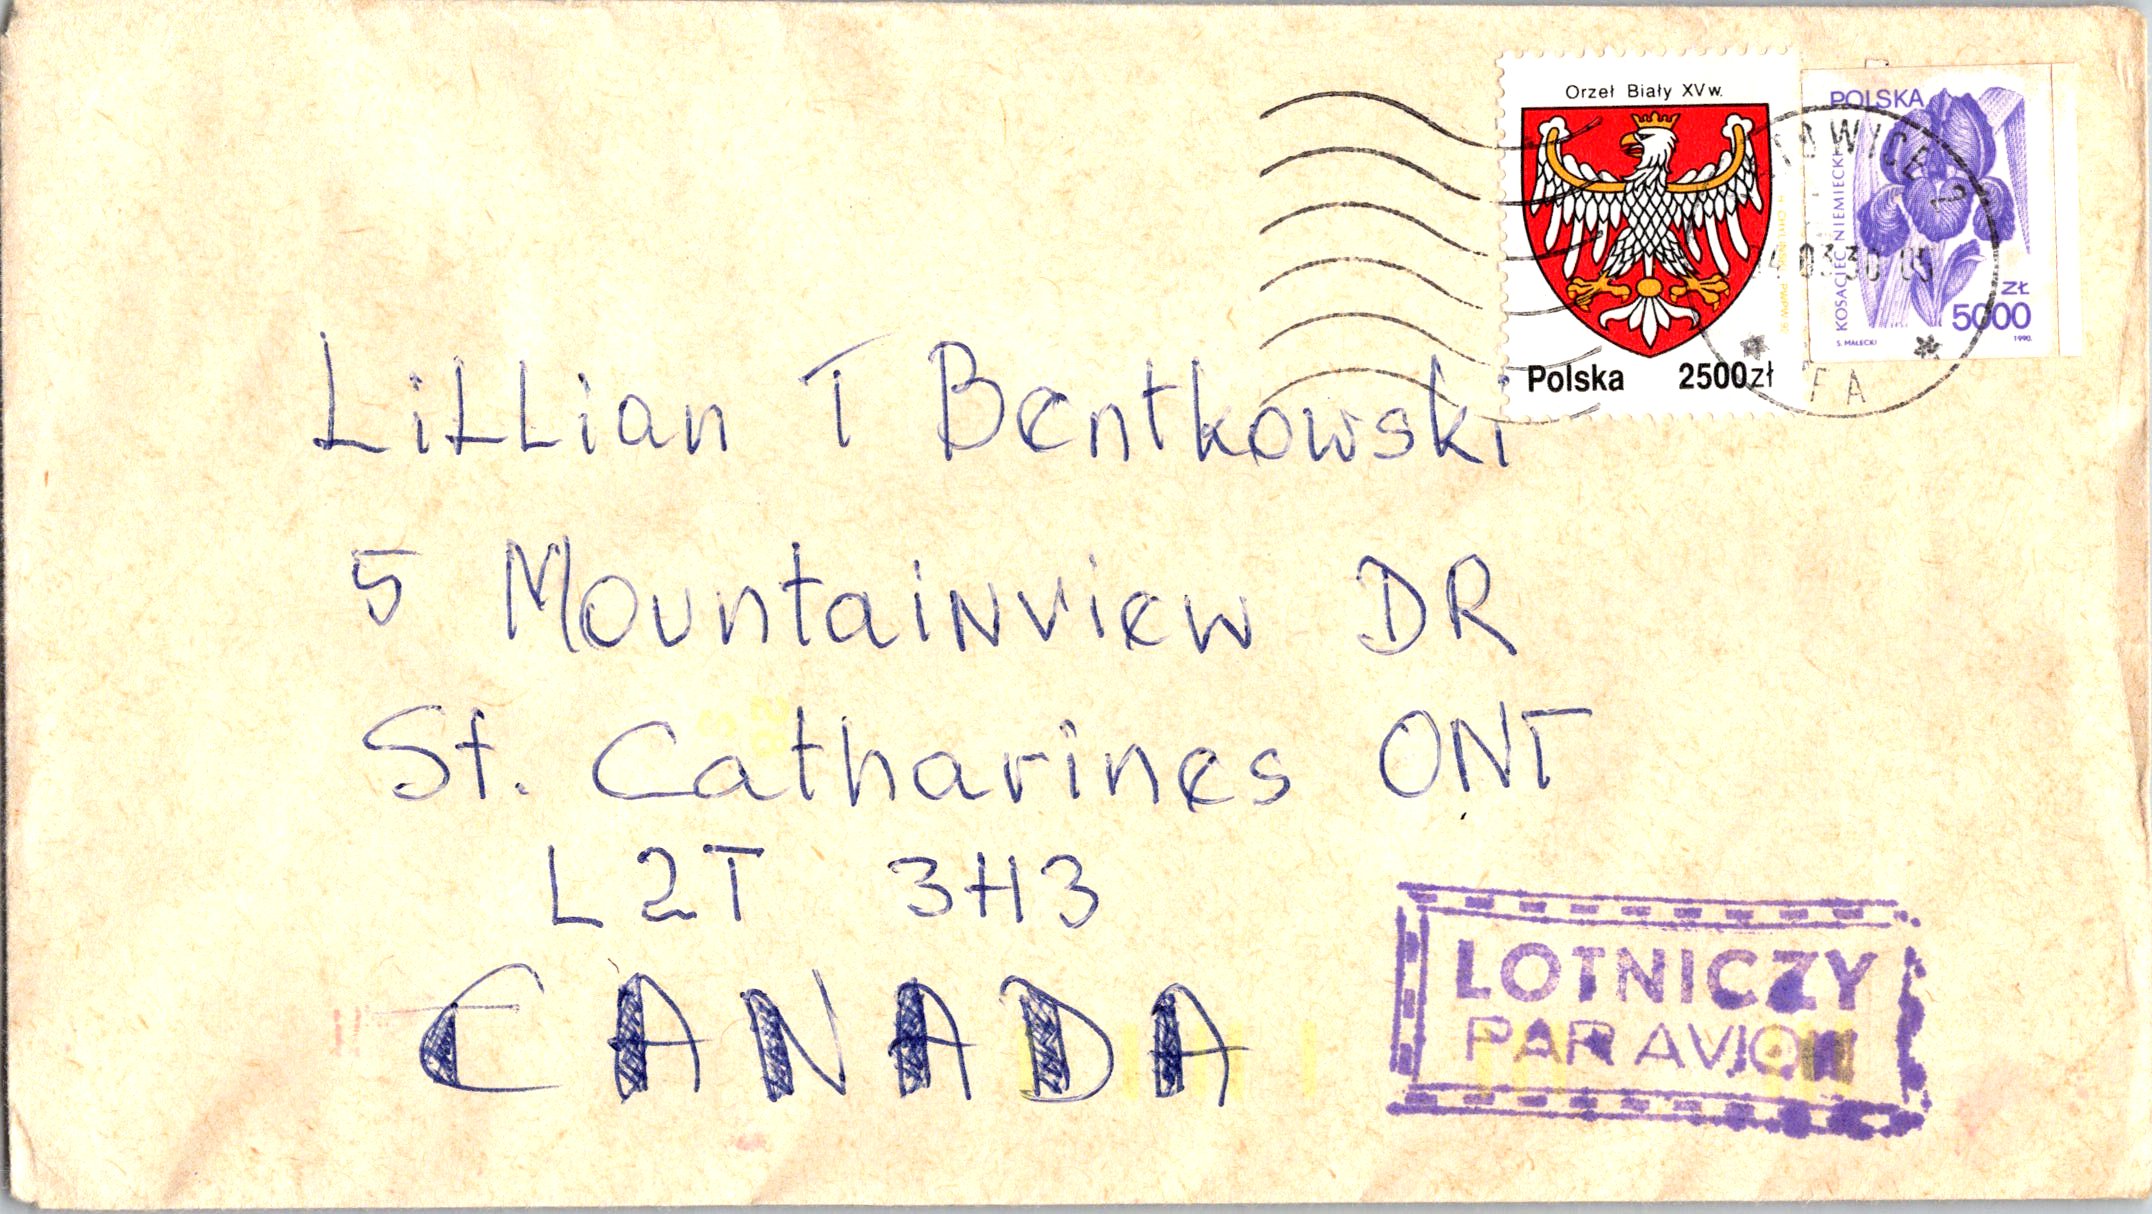 Orzeł Biały XVw.
Polska 2500zł
POLSKA
KOSACIEC NIEMIECKI
ZŁ
5000
S. MAŁECKI 1990.
LiLLian T Bentkowski
5 Mountainview DR
St. Catharines ONT
L2T 3H3
CANADA
LOTNICZY
PAR AVION